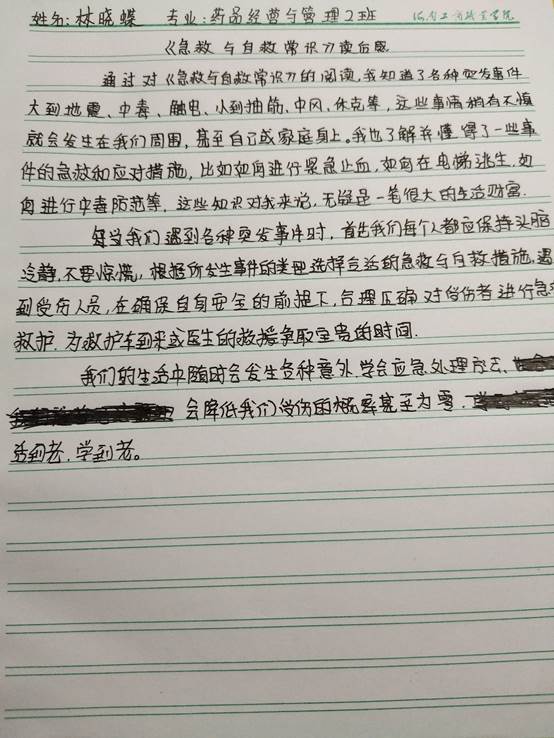 姓名:林晓蝶 专业:药品经营与管理2班 海南工商职业学院
《急救与自救常识》读后感
通过对《急救与自救常识》的阅读,我知道了各种突发事件
大到地震、中毒、触电、小到抽筋、中风、休克等,这些事情稍有不慎
就会发生在我们周围,甚至自己或家庭身上。我也了解并懂得了一些事
件的急救和应对措施,比如如何进行紧急止血,如何在电梯逃生,如
何进行中毒防范等,这些知识对我来说,无疑是一笔很大的生活财富.
每当我们遇到各种突发事件时,首先我们每个人都应保持头脑
冷静,不要惊慌,根据所发生事件的类型选择合适的急救与自救措施,遇
到受伤人员,在确保自身安全的前提下,合理正确对受伤者进行急
救护.为救护车到来或医生的救援争取宝贵的时间.
我们的生活中随时会发生各种意外.学会应急处理方法、
会降低我们受伤的概率甚至为零.
活到老.学到老。